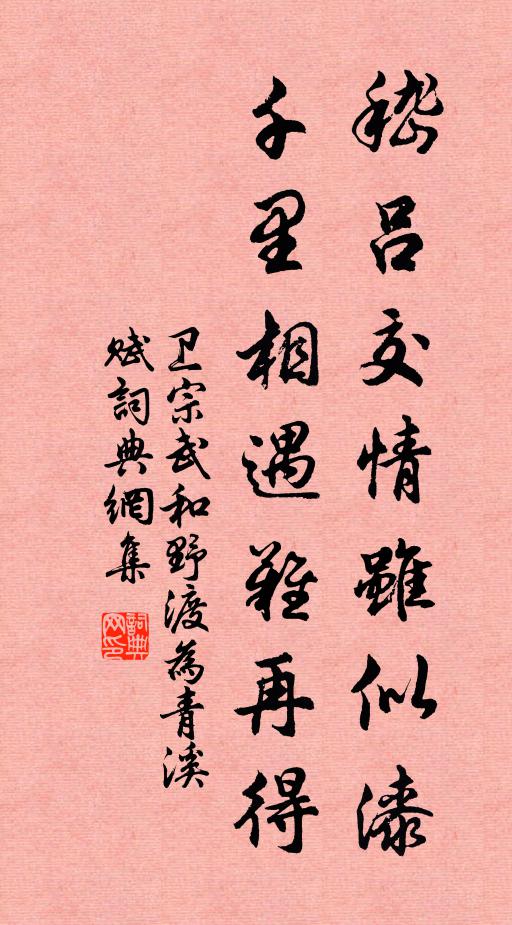 嵇吕交情雖似漆
千里相遇難再得
卫宗武和野渡為青溪
賦詞典網集
詞典網印